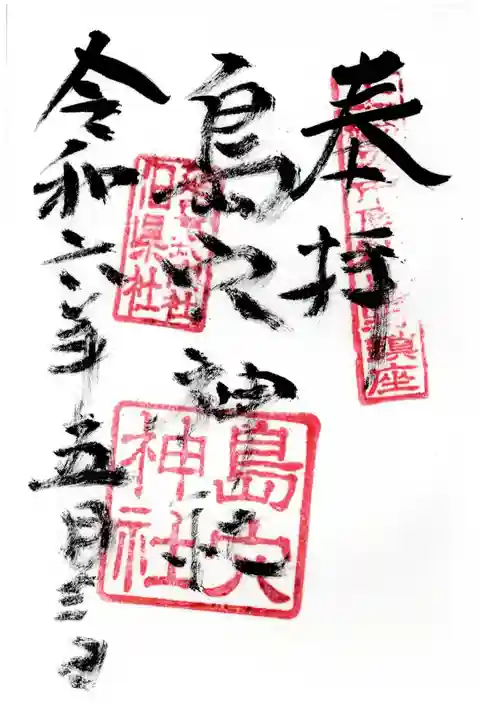 奉拝
鎮座
島穴神社
旧県社
島穴
神社
令和六年五月三日